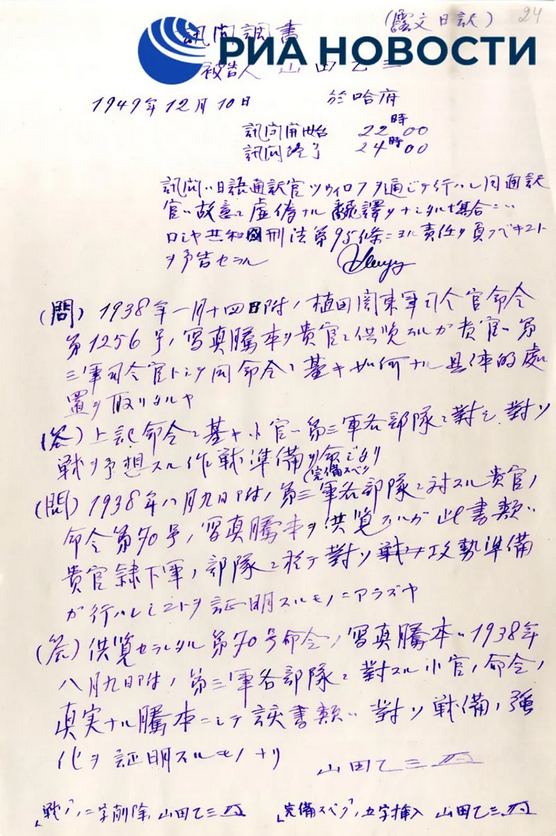 24
(露文日訳)
訊問調書
РИА НОВОСТИ
被告人 山田乙三
1949年12月10日 於哈府
訊問開始 22時00
訊問終了 24時00
訊問ハ日語通訳官ツウイロフヲ通ジテ行ハレ同通訳
官ハ故意ニ虚偽ナル飜譯ヲナシタル場合ニハ
ロシヤ共和國刑法第95條ニヨル責任ヲ負フベキコト
ヲ予告セラル
(問) 1938年一月十四日附ノ植田関東軍司令官命令
第1256号ノ写真騰本ヲ貴官ニ供覧スルガ貴官ハ第
三軍司令官トシテ同命令ニ基キ如何ナル具体的處
置ヲ取リタルヤ
(答) 上記命令ニ基キ小官ハ第三軍各部隊ニ對シ對ソ
戦ヲ予想スル作戦準備ヲ命ジタリ
(完備スベク
(問) 1938年八月九日附ノ第三軍各部隊ニ対スル貴官ノ
命令第70号ノ写真騰本ヲ供覧スルガ此書類ハ
貴官隷下軍ノ部隊ニ於テ對ソ戦攻勢準備
ガ行ハレシコトヲ証明スルモノニアラズヤ
(答) 供覧セラレタル第70号命令ノ写真騰本ハ1938年
八月九日附ノ第三軍各部隊ニ對スル小官ノ命令ノ
真実ナル騰本ニシテ該書類ハ對ソ戦備ノ強
化ヲ証明スルモノナリ
山田乙三
「戦ヲ」ノ二字削除 山田乙三 「完備スベク」五字挿入 山田乙三